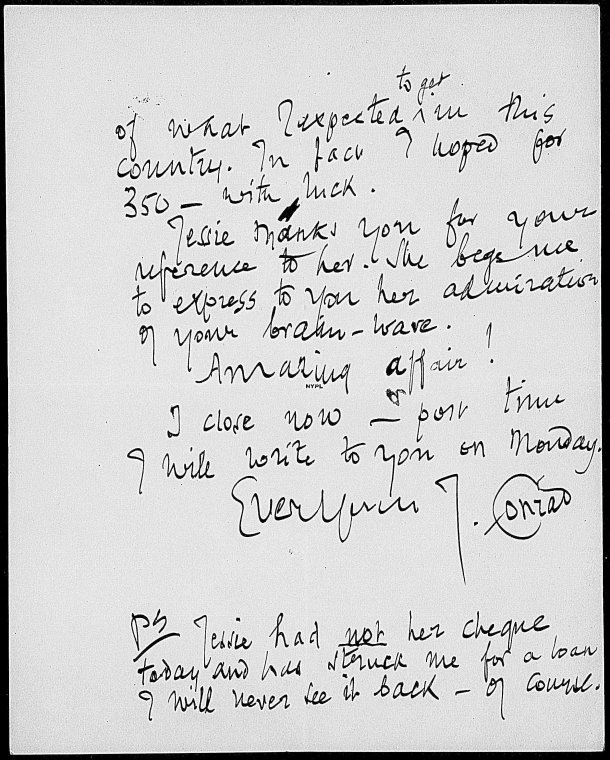 to get
of what I expected in this
country. In fact I hoped for
350 – with luck.
Jessie thanks you for your
reference to her. She begs me
to express to you her admiration
of your brain-wave.
Amazing affair!
NYPL
I close now – post time
I will write to you on Monday.
Ever Yours J. Conrad
PS Jessie had not her cheque
today and has struck me for a loan
I will never see it back – of course.